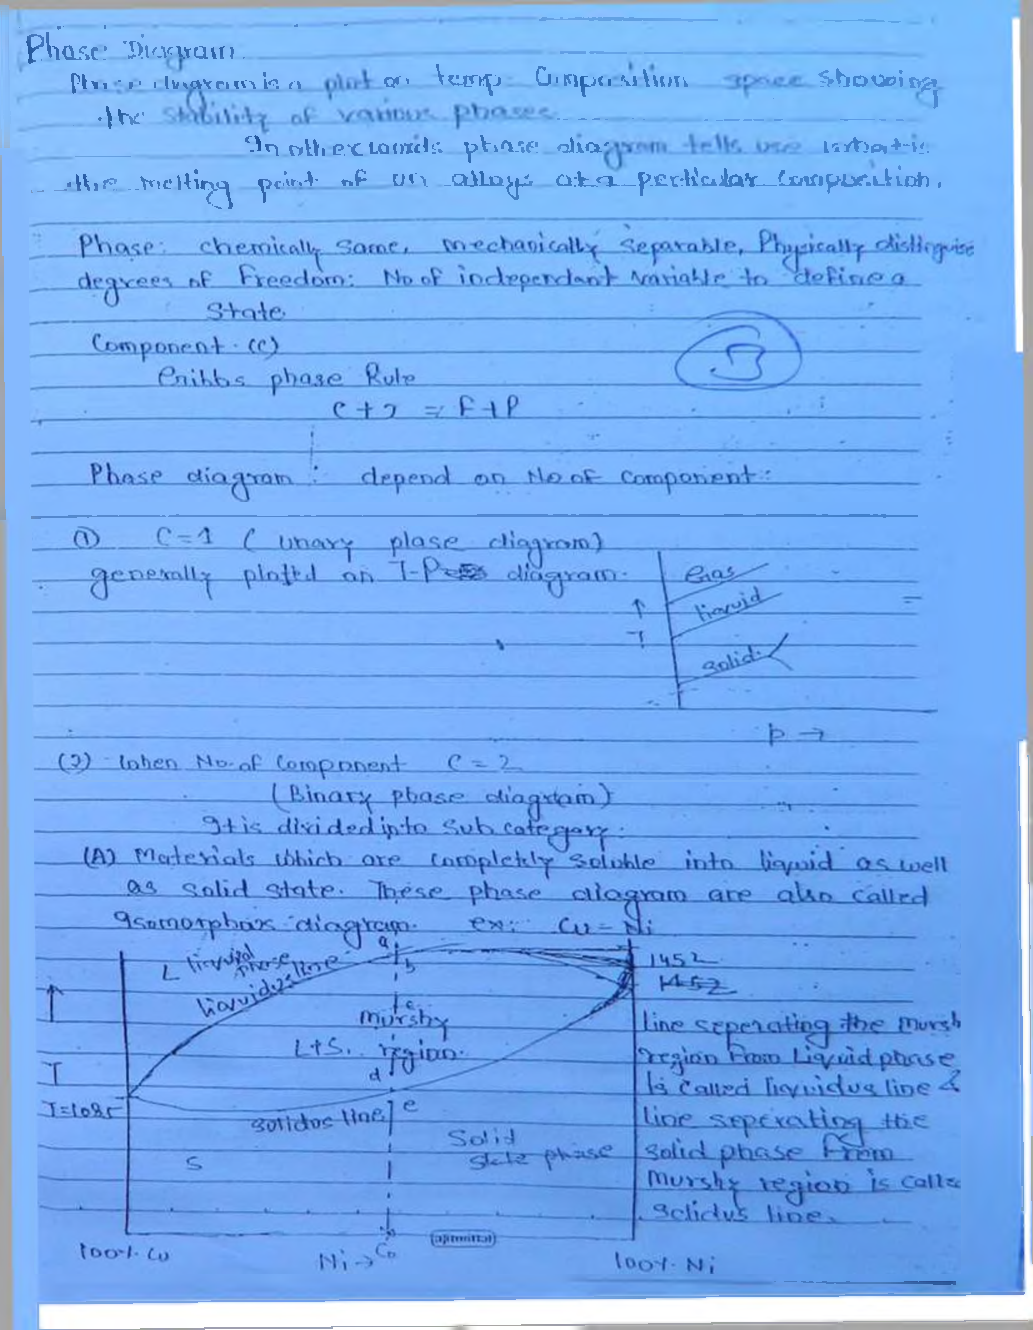 Phase Diagram
Phase diagram is a plot on temp Composition space showing
the stability of various phases
In other words phase diagram tells use what is
the melting point of an alloys at a perticular Composition.
Phase: chemically same, mechanically separable, Physically distinguise
degrees of Freedom: No of independant variable to define a
State
Component (C)
Gribbs phase Rule
C+2 = F+P
Phase diagram : depend on No of Component:
① C=1 ( Unary plase diagram)
generally plottd on T-P diagram.
Gas
liquid
↑
T
solid
P →
(2) When No. of Component C = 2
(Binary phase diagram)
It is divided into Sub category.
(A) Materials which are Completely soluble into liquid as well
as solid state. These phase diagram are also called
Isomorphas diagram. ex: Cu-Ni
L liquid phase
liquidus line
a
b
1452
1452
c
murshy
L+S. region.
d
T
T=1085
solidus line
e
S
Solid
state phase
line seperating the mursh
region from Liquid phase
is called liquidus line &
line seperating the
solid phase from
Murshy region is calle
solidus line.
100%. Cu
Ni →
Co
(ajtmittal)
100%. Ni